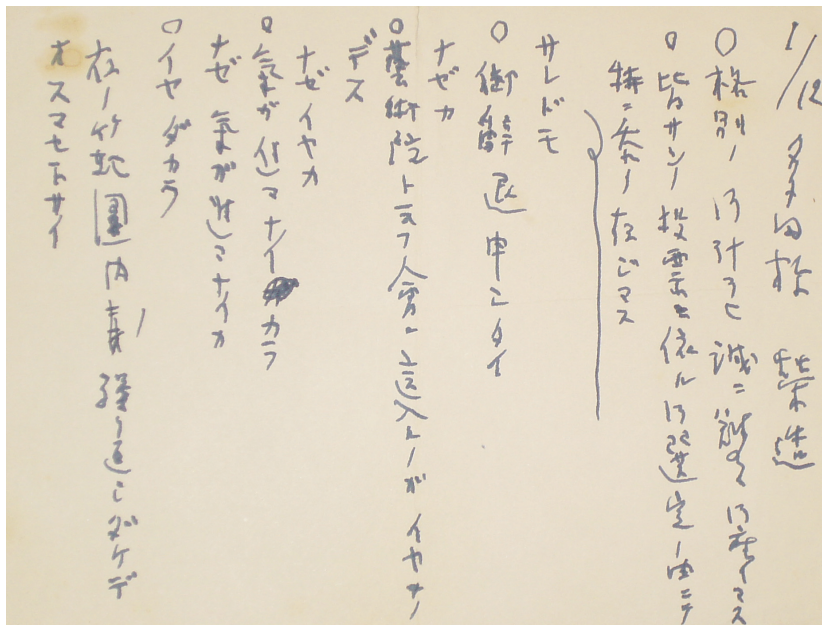 1/12 多田様 榮造
○格別ノ御計ラヒ誠ニ難有ク御座イマス
○皆サンノ投票ニ依ル御選定ノ由ニテ
特ニ忝ク存ジマス
サレドモ
○御辭退申シタイ
ナゼカ
○藝術院ト云フ會ニ這入ルノガイヤナノ
デス
ナゼイヤカ
○氣ガ進マナイカラ
ナゼ氣ガ進マナイカ
○イヤダカラ
右ノ範圍内 繰リ返シダケデ
オスマセ下サイ